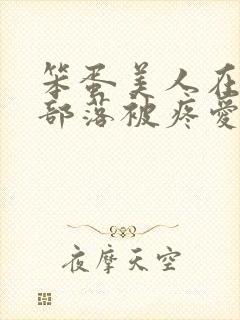 笨蛋美人在
部落被疼爱
夜摩天空